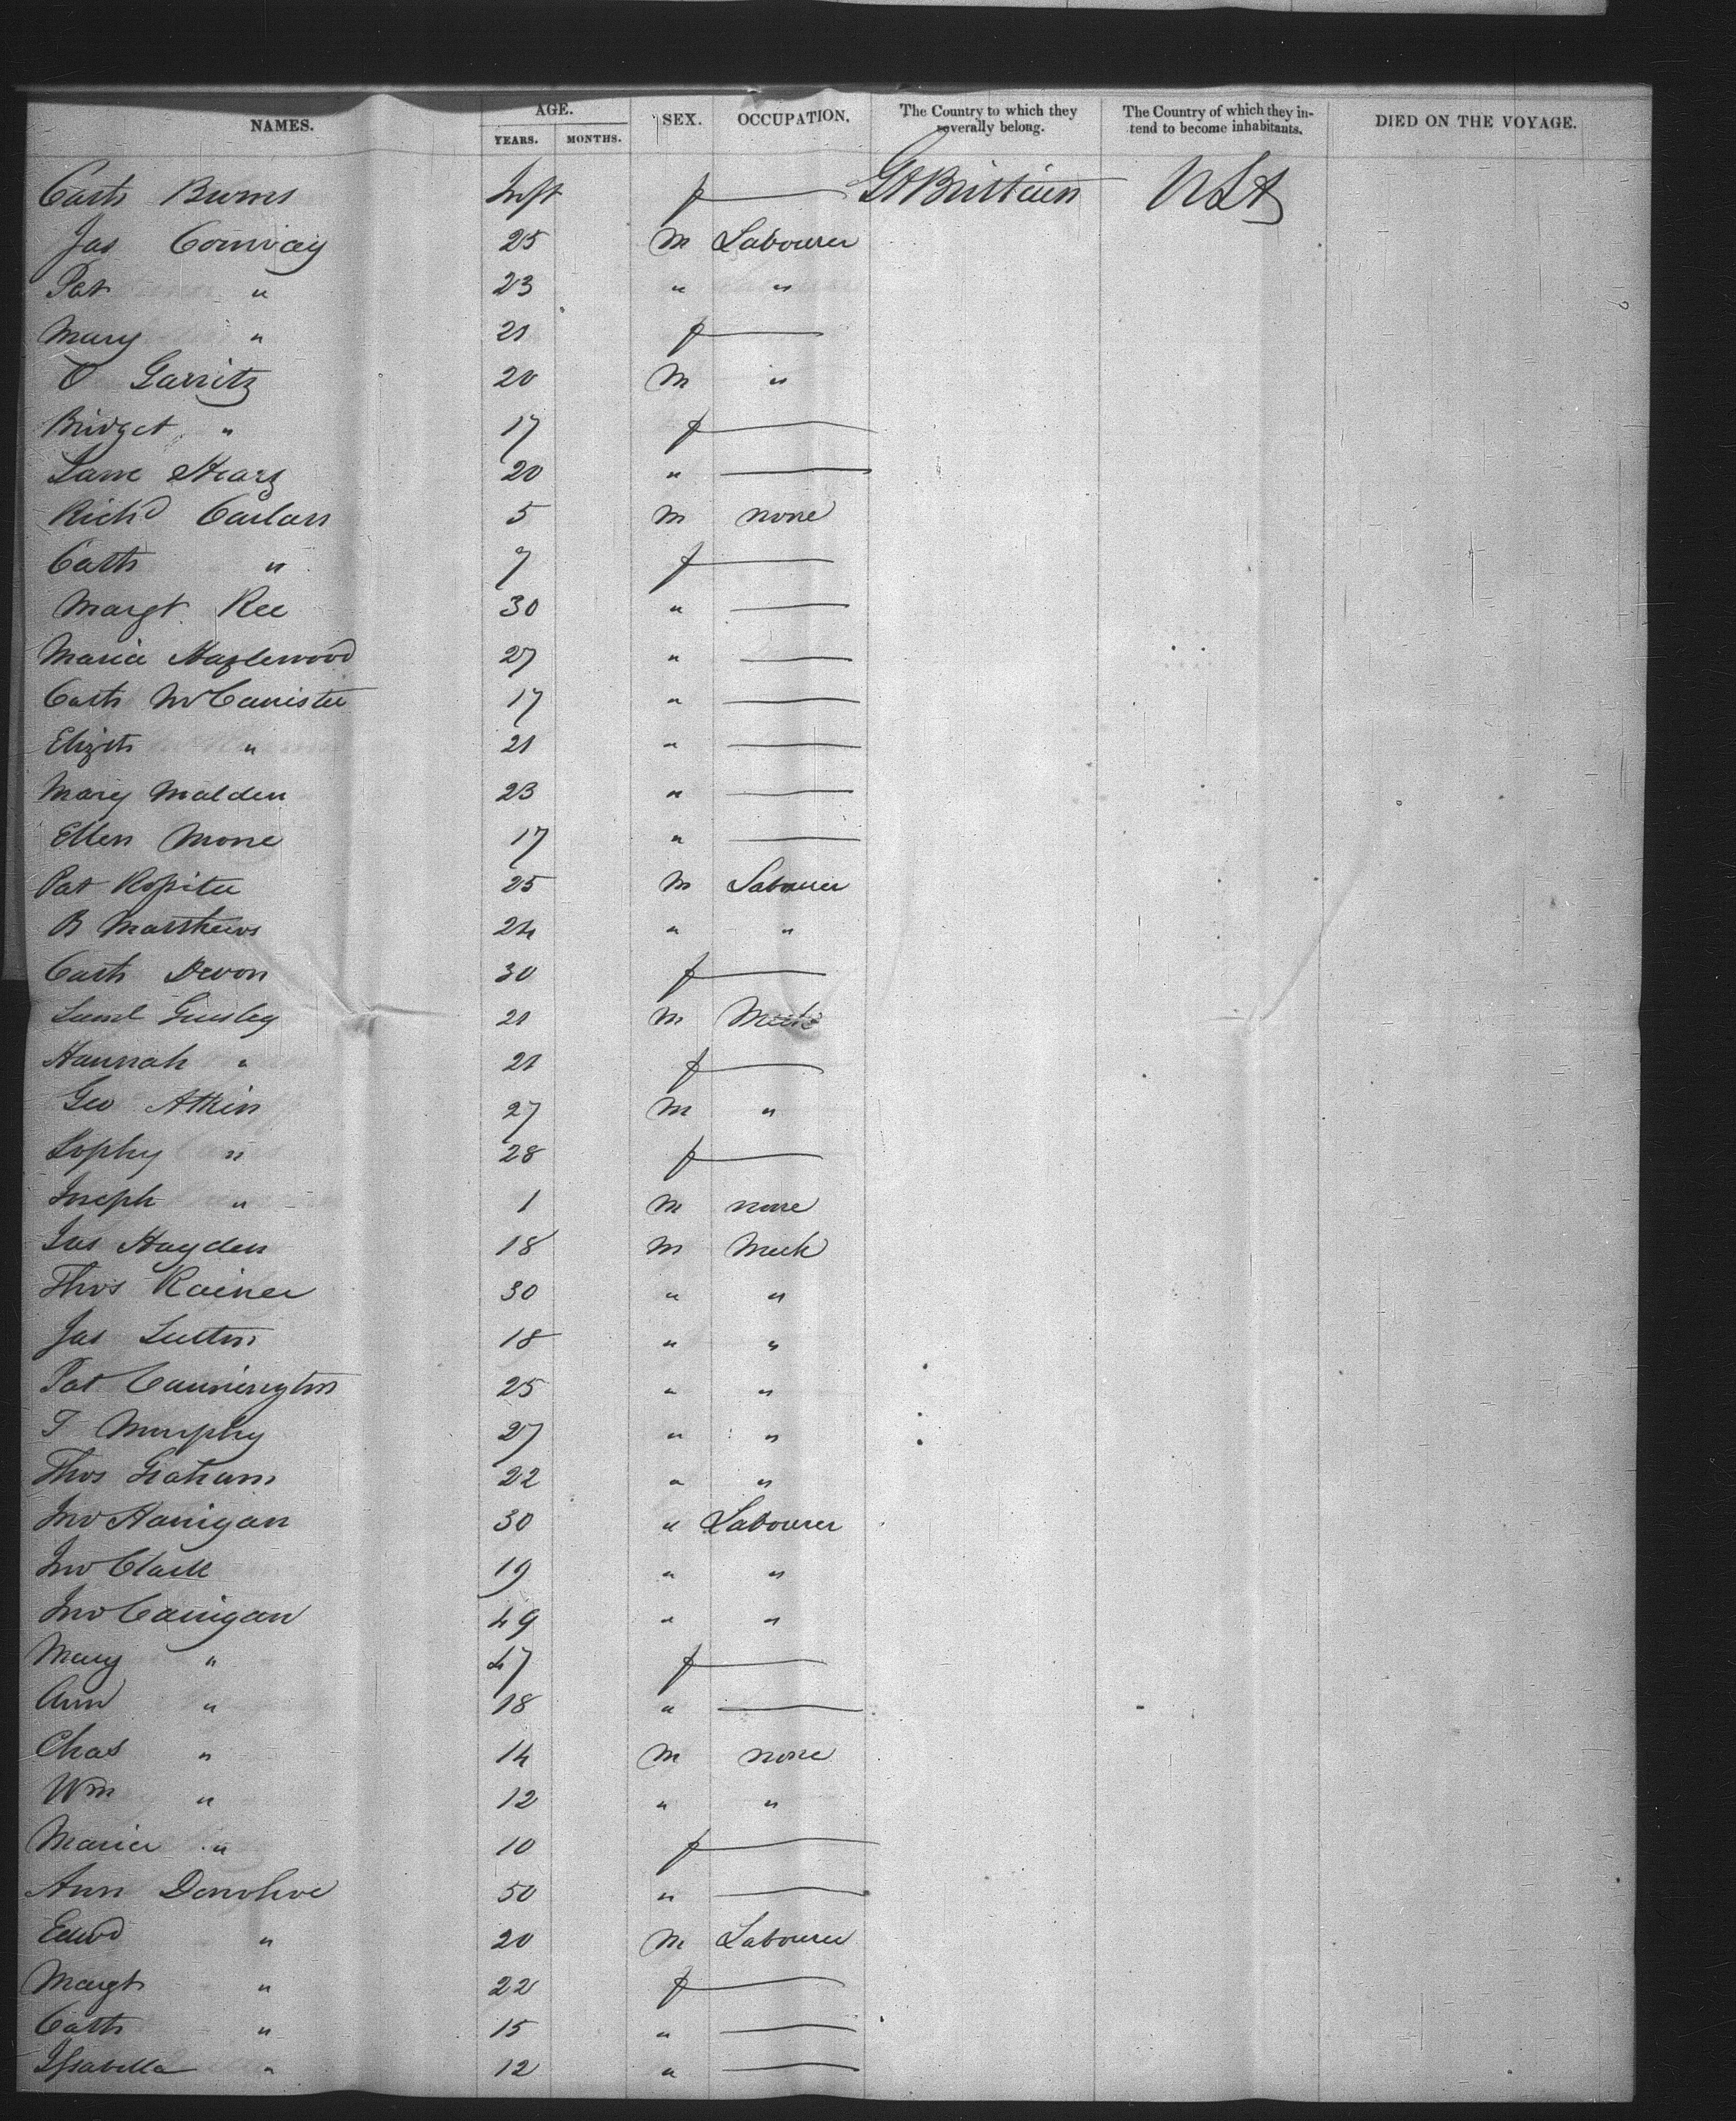 NAMES. AGE. SEX. OCCUPATION. The Country to which they severally belong. The Country of which they intend to become inhabitants. DIED ON THE VOYAGE.
YEARS. MONTHS.
Cath Burns Inft f — Gt Brittain USA
Jas Conway 25 M Labourer
Pat " 23 " "
Mary " 21 f —
O Garrity 20 M "
Bridget " 17 f —
20 " —
Richd Carlan 5 M none
Cath " 7 f —
Margt Ree 30 " —
Maria Hazlewood 27 " —
Cath McCanister 17 " —
Elizth " 21 " —
Mary Malden 23 " —
Ellen Mone 17 " —
Pat Rositer 25 M Labourer
B Matthews 24 " "
Cath Devon 30 f —
Saml 21 M Mech
Hannah " 21 f —
Geo Atkin 27 M "
Sophy " 28 f —
Joseph " 1 M none
Jas Hayden 18 M Mech
Thos Rainer 30 " "
Jas 18 " "
Pat Cannington 25 " "
T Murphy 27 " "
Thos Graham 22 " "
Jno Hanigan 30 " Labourer
Jno Clark 19 " "
Jno Carrigan 49 " "
Mary " 47 f —
Ann " 18 " —
Chas " 14 M none
Wm " 12 " "
Maria " 10 f —
Ann Donohoe 50 " —
Edwd " 20 M Labourer
Margt " 22 f —
Cath " 15 " —
Issabella " 12 " —